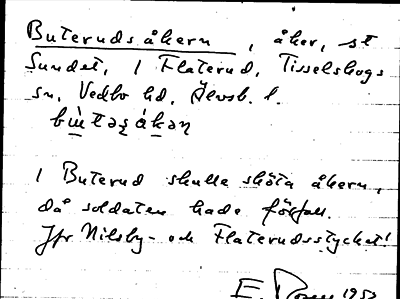 Buterudsåkern, åker, st
Sundet, i Flaterud, Tisselskogs
sn, Vedbo hd, Älvsb. l.
I Buterud skulle sköta åkern,
då soldaten hade förfall.
Jfr Nilsby- och Flaterudsstycket!
E. 1952